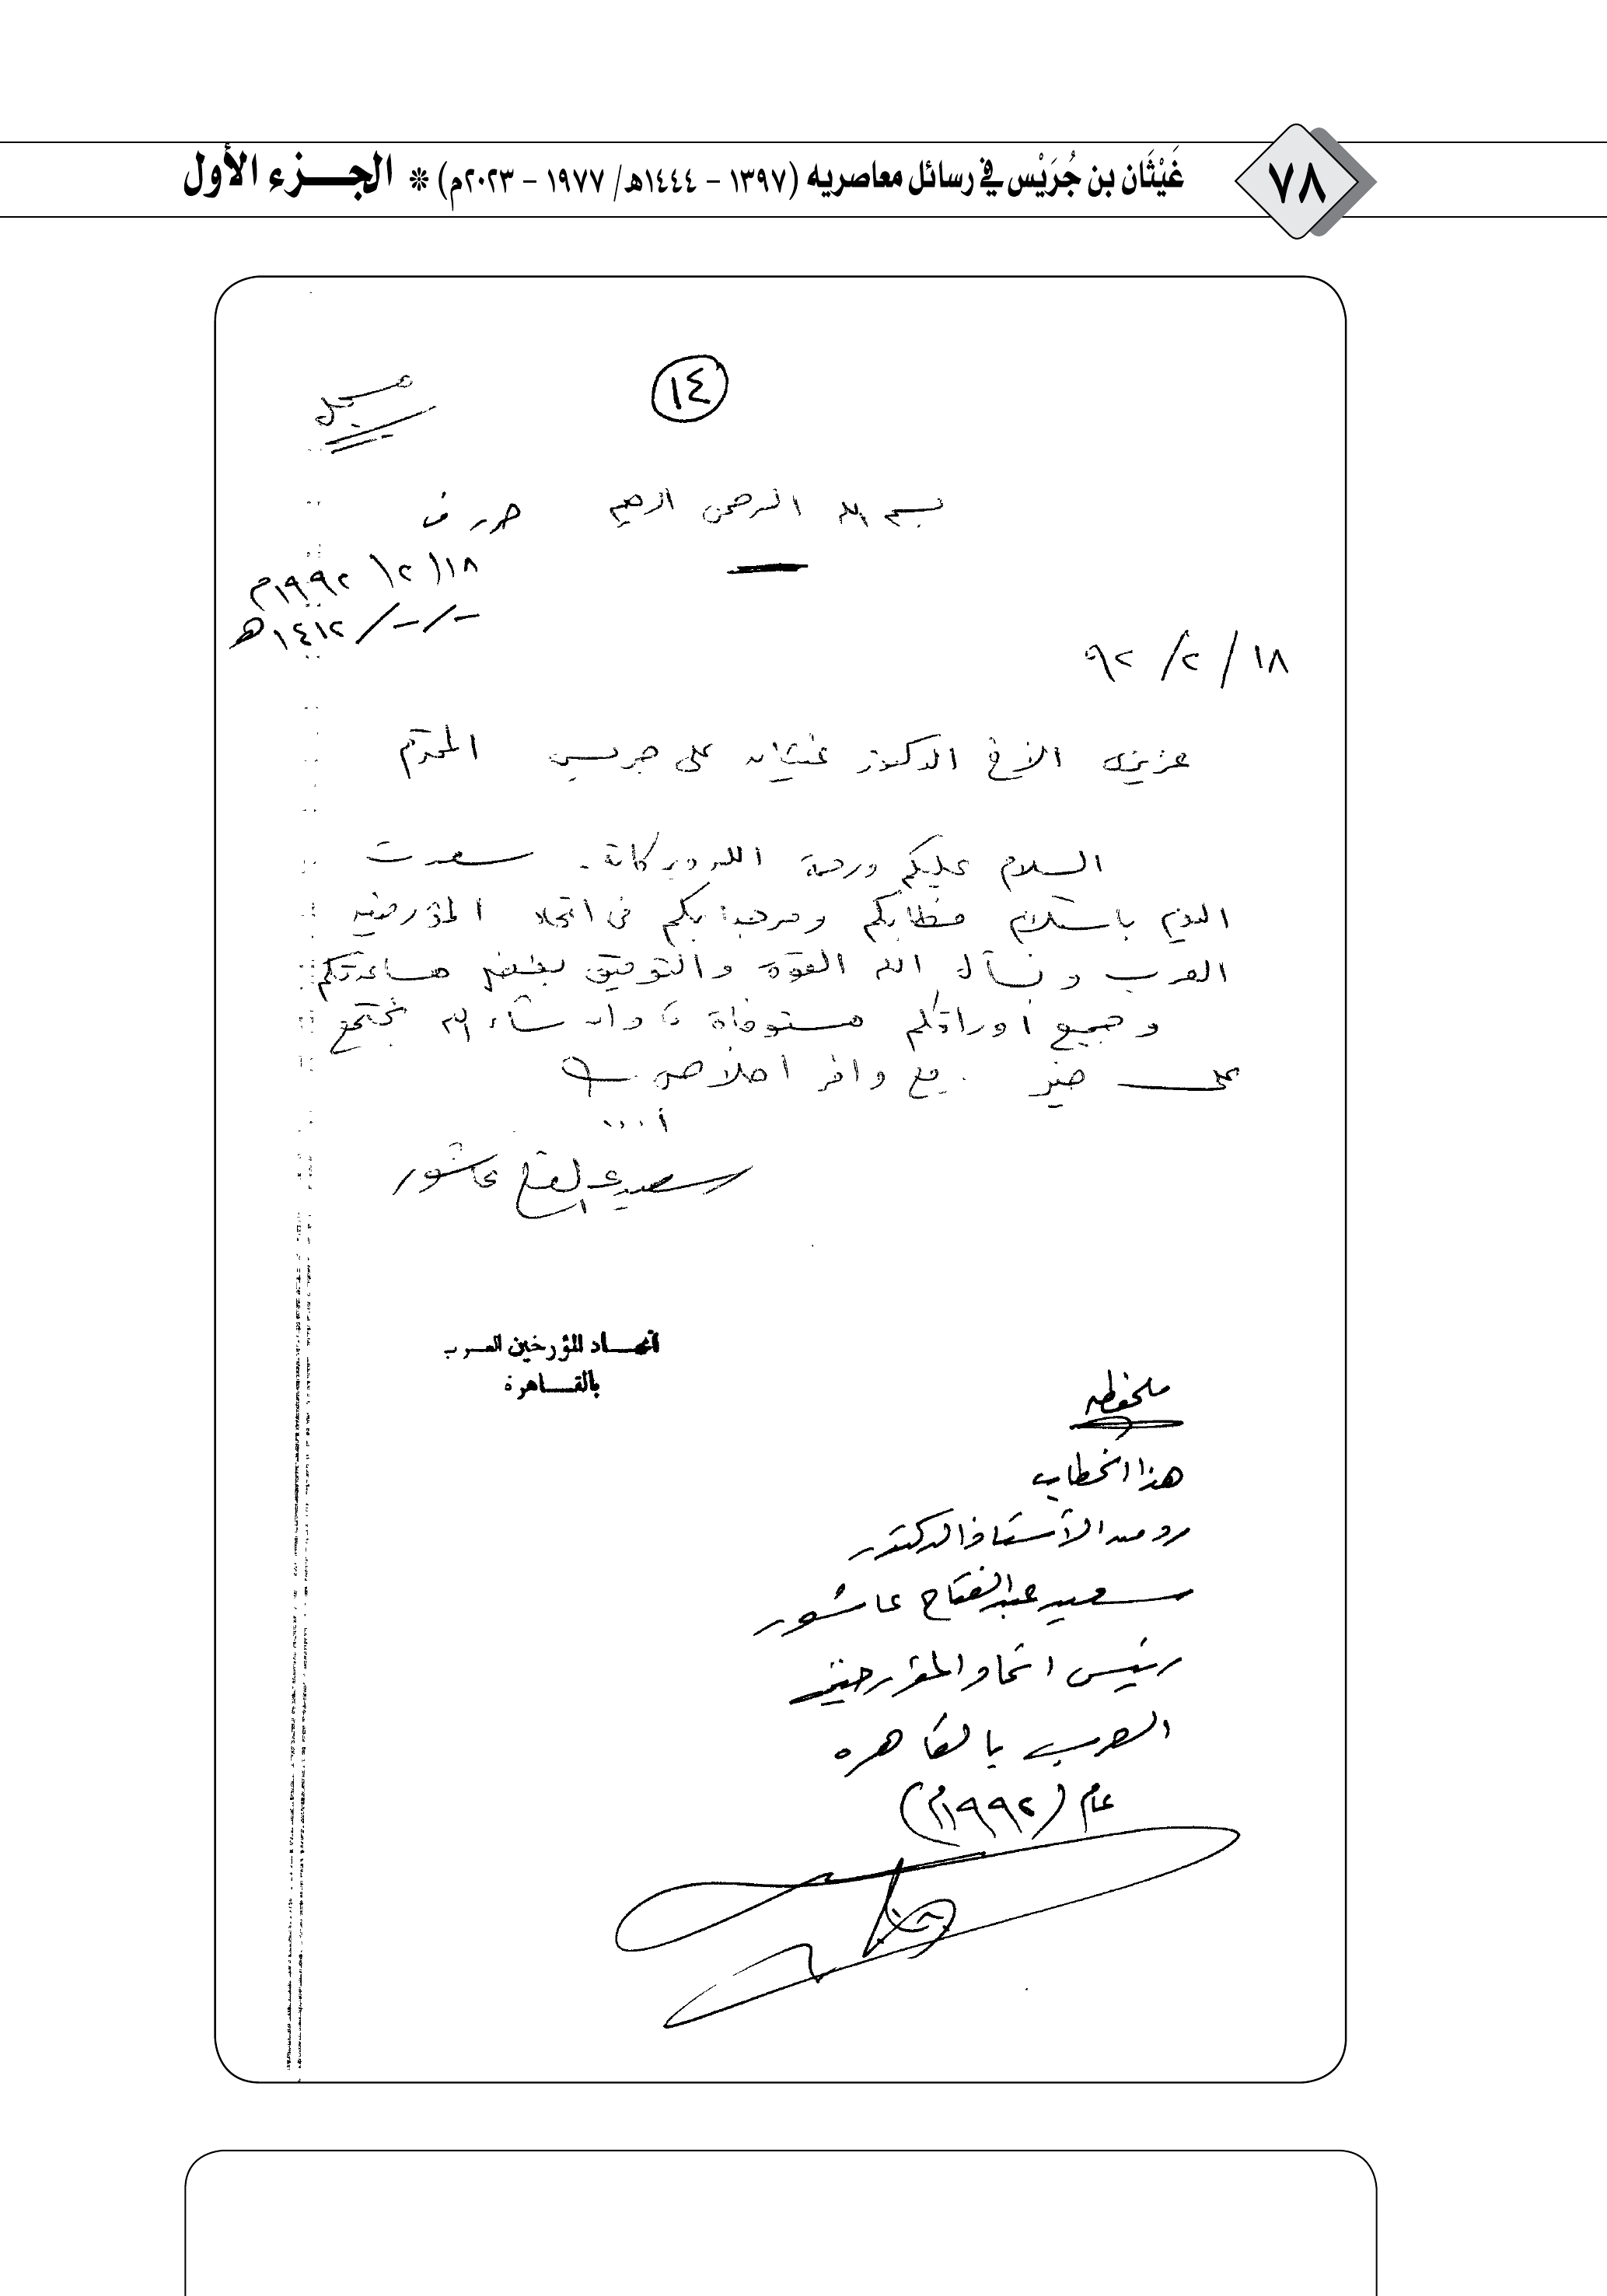 ٧٨
غَيْثَان بن جُرَيْس في رسائل معاصريه (١٣٩٧ - ١٤٤٤هـ/ ١٩٧٧ - ٢٠٢٣م) * الجـزء الأول
١٤
مسجل
بسم الله الرحمن الرحيم
١٨/ ٢/ ١٩٩٢م
-/-/ ١٤١٢هـ
١٨/ ٢/ ٩٢
عزيزى الأخ الدكتور غيثان على جريس المحترم
السلام عليكم ورحمة الله وبركاته. سعدت
اليوم باستلام خطابكم ومرحبا بكم فى اتحاد المؤرخين
العرب ونسأل الله القوة والتوفيق بفضل مساعدتكم
وجميع أوراقكم مستوفاة، وان شاء الله نجتمع
على خير. مع وافر اخلاصى
سعيد عبد الفتاح عاشور
اتحـاد المؤرخين العـرب
بالقـاهرة
ملحوظه
هذا الخطاب
الأستاذ الدكتور
سعيد عبد الفتاح عاشور
رئيس اتحاد المؤرخين
العرب بالقاهره
عام (١٩٩٢م)